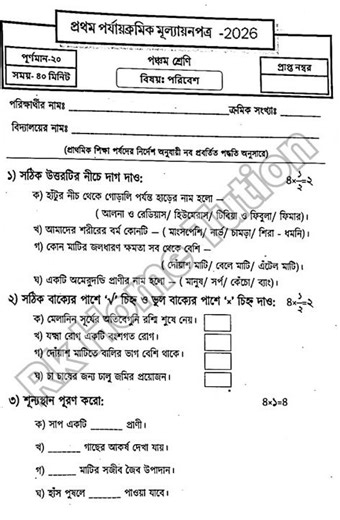 প্রথম পর্যায়ক্রমিক মূল্যায়নপত্র -2026
পূর্ণমান-২০
সময়- ৪০ মিনিট
পঞ্চম শ্রেণি
বিষয়: পরিবেশ
প্রাপ্ত নম্বর
পরিক্ষার্থীর নামঃ ক্রমিক সংখ্যাঃ
বিদ্যালয়ের নামঃ
(প্রাথমিক শিক্ষা পর্ষদের নির্দেশ অনুযায়ী নব প্রবর্তিত পদ্ধতি অনুসারে)
১) সঠিক উত্তরটির নীচে দাগ দাও: ৪×½=২
ক) হাঁটুর নীচ থেকে গোড়ালি পর্যন্ত হাড়ের নাম হলো –
( আলনা ও রেডিয়াস/ হিউমেরাস/ টিবিয়া ও ফিবুলা/ ফিমার)।
খ) আমাদের শরীরের বর্ম কোনটি – ( মাংসপেশি/ নার্ভ/ চামড়া/ শিরা - ধমনি)।
গ) কোন মাটির জলধারণ ক্ষমতা সব থেকে বেশি –
(দোঁয়াশ মাটি/ বেলে মাটি/ এঁটেল মাটি)।
ঘ) একটি অমেরুদন্ডি প্রাণীর নাম হলো – ( মানুষ/ সর্প/ কেঁচো/ ব্যাং)।
২) সঠিক বাক্যের পাশে '√' চিহ্ন ও ভুল বাক্যের পাশে '×' চিহ্ন দাও: ৪×½=২
ক) মেলানিন সূর্যের অতিবেগুনি রশ্মি শুষে নেয়।
খ) যক্ষা রোগ একটি বংশগত রোগ।
গ) দোঁয়াশ মাটিতে বালির ভাগ বেশি থাকে।
ঘ) চা চাষের জন্য ঢালু জমির প্রয়োজন।
৩) শূন্যস্থান পূরণ করো: ৪×১=৪
ক) সাপ একটি ______ প্রাণী।
খ) ______ গাছের আকর্ষ দেখা যায়।
গ) ______ মাটির সজীব জৈব উপাদান।
ঘ) হাঁস পুষলে ______ পাওয়া যাবে।
Rk Home Tution